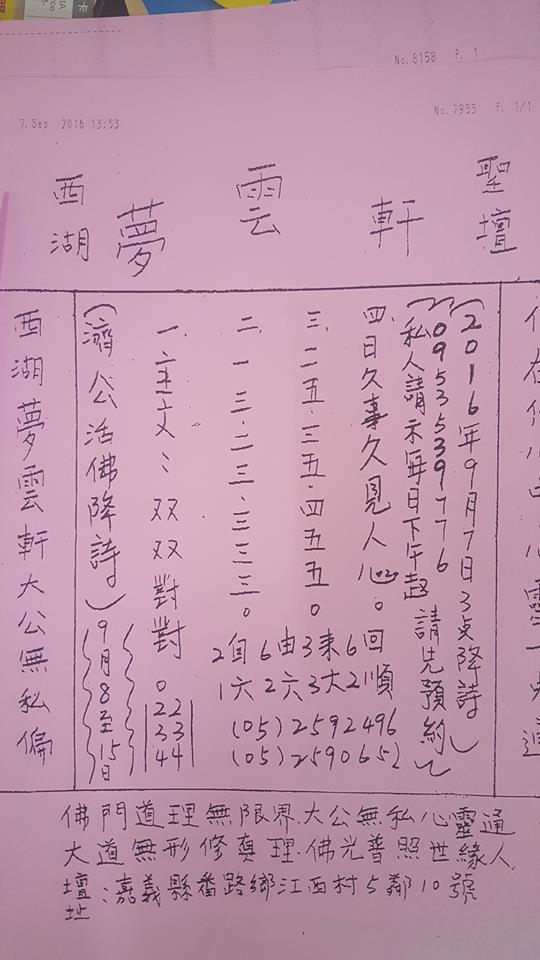 No. 8158 P. 1
7. Sep. 2016 13:53
No. 7933 P. 1/1
聖壇
軒
雲
夢
西湖
(2016年9月7日3点降詩)
(0953539776
私人請示每日下午起 請先預約)
四.日久事久見人心。
三.二五.三五.四五五。
二.一三.二三.三三三。
一.主文:双双對對。
2自6由3来6回
1六2六3大2順
(05)2592496
(05)2590652
22
33
44
(濟公活佛降詩)
9月8至15日
西湖夢雲軒大公無私偏
佛門道理無限界.大公無私心靈通
大道無形修真理.佛光普照世緣人
壇址:嘉義縣番路鄉江西村5鄰10號